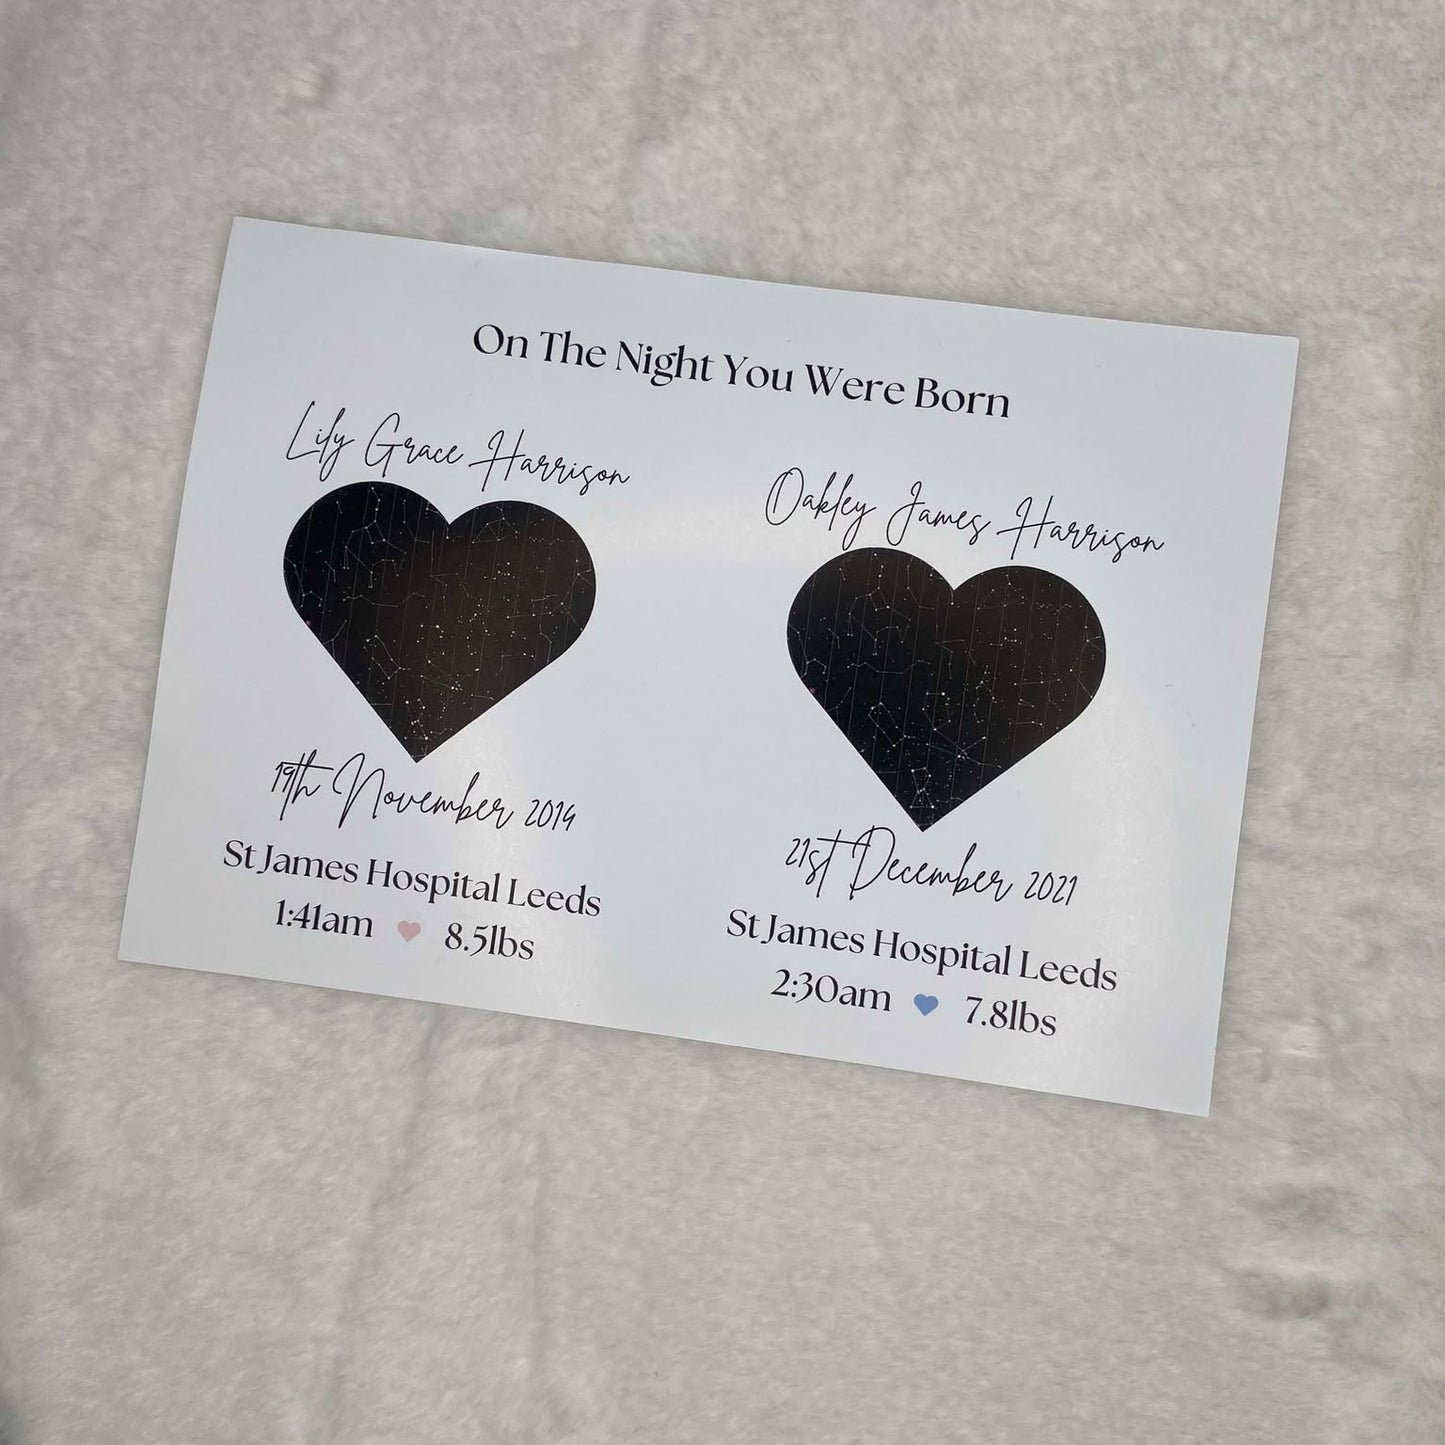 On The Night You Were Born
Lily Grace Harrison
19th November 2014
St James Hospital Leeds
1:41am 8.5lbs
Oakley James Harrison
21st December 2021
St James Hospital Leeds
2:30am 7.8lbs